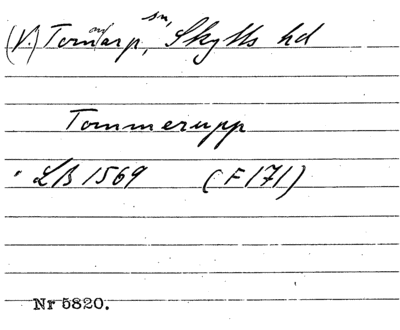 (V.) Tommarp, sn, Skytts hd
Tommerupp
LB 1569 (F 171)
Nr 5820.